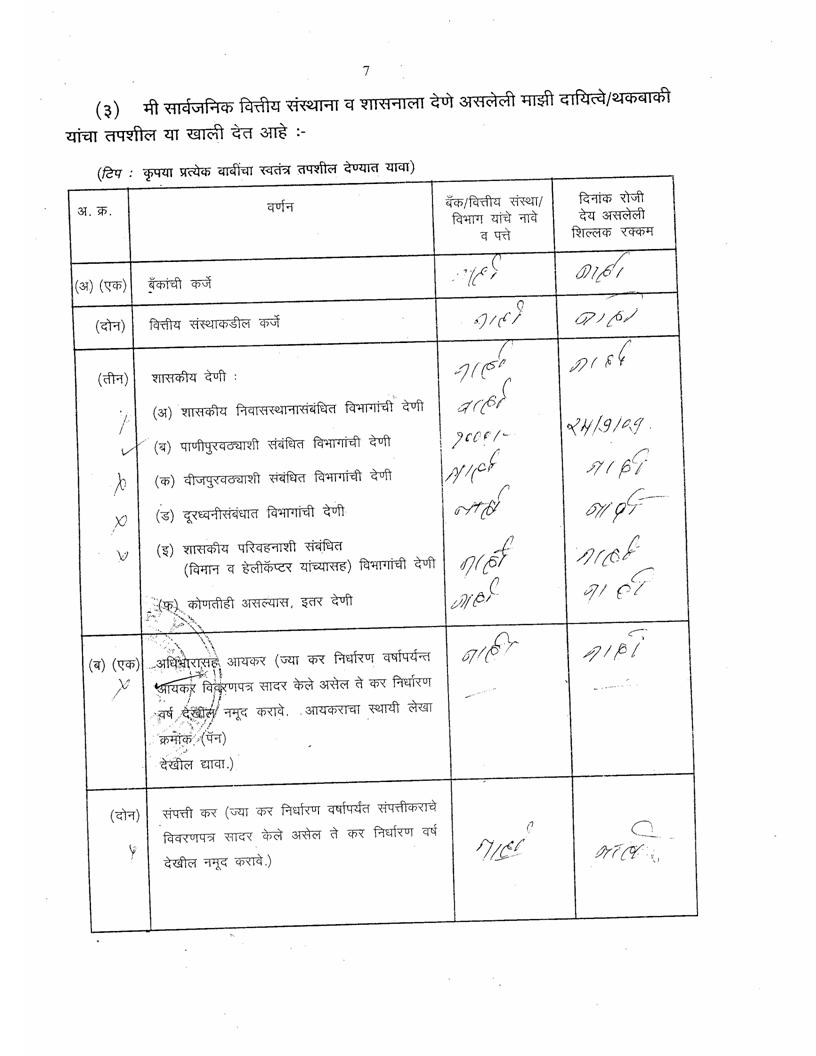 7
(३) मी सार्वजनिक वित्तीय संस्थाना व शासनाला देणे असलेली माझी दायित्वे/थकबाकी
यांचा तपशील या खाली देत आहे :-
(टिप : कृपया प्रत्येक बाबींचा स्वतंत्र तपशील देण्यात यावा)
अ. क्र.
वर्णन
बँक/वित्तीय संस्था/
विभाग यांचे नावे
व पत्ते
दिनांक रोजी
देय असलेली
शिल्लक रक्कम
(अ) (एक) बँकांची कर्जे नाही नाही
(दोन) वित्तीय संस्थाकडील कर्जे नाही नाही
(तीन) शासकीय देणी : नाही नाही
(अ) शासकीय निवासस्थानासंबंधित विभागांची देणी नाही
(ब) पाणीपुरवठ्याशी संबंधित विभागांची देणी
(क) वीजपुरवठ्याशी संबंधित विभागांची देणी नाही नाही
(ड) दूरध्वनीसंबंधात विभागांची देणी नाही नाही
(इ) शासकीय परिवहनाशी संबंधित
(विमान व हेलीकॅप्टर यांच्यासह) विभागांची देणी नाही नाही
(फ) कोणतीही असल्यास, इतर देणी नाही नाही
(ब) (एक) अधिभारासह आयकर (ज्या कर निर्धारण वर्षापर्यन्त नाही नाही
आयकर विवरणपत्र सादर केले असेल ते कर निर्धारण
वर्ष देखील नमूद करावे. आयकराचा स्थायी लेखा
क्रमांक (पॅन)
देखील द्यावा.)
(दोन) संपत्ती कर (ज्या कर निर्धारण वर्षापर्यंत संपत्तीकराचे
विवरणपत्र सादर केले असेल ते कर निर्धारण वर्ष नाही नाही
देखील नमूद करावे.)